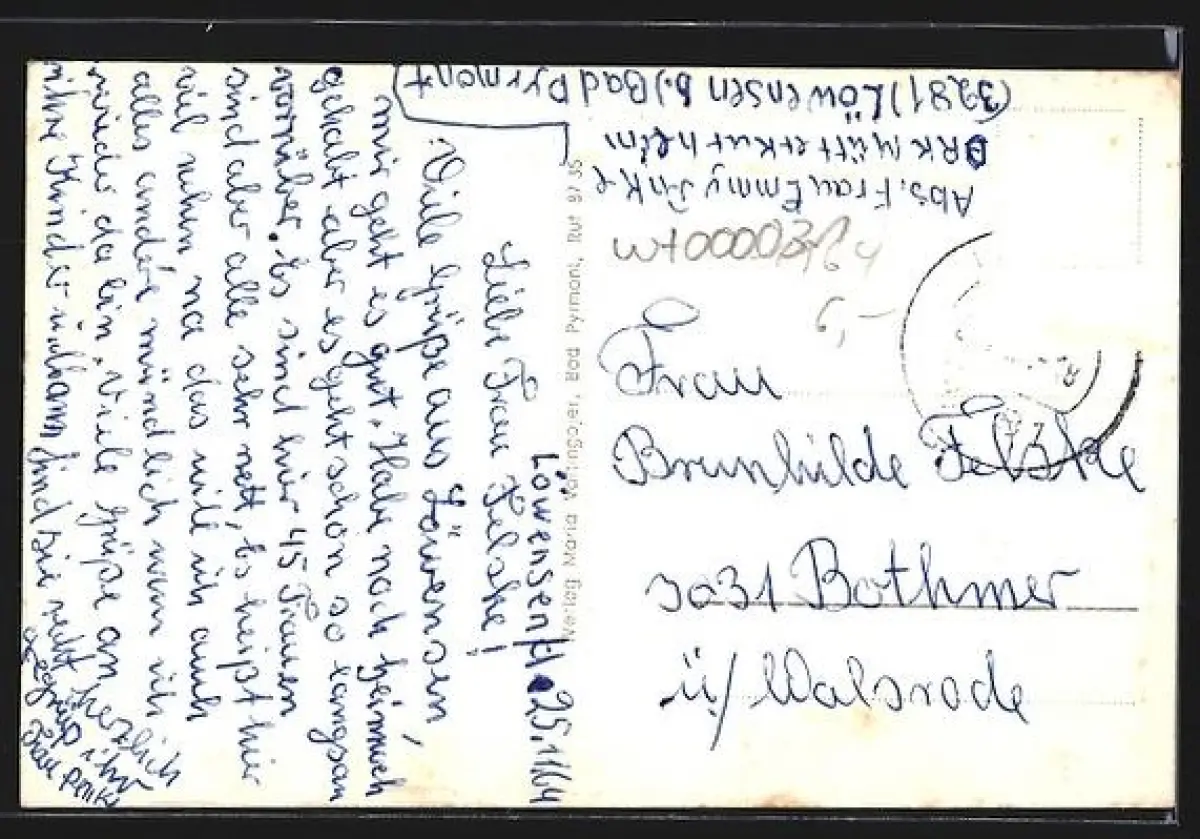 Löwensen, d. 25.11.64
Liebe Frau Felske!
Viele Grüße aus Löwensen
mir geht es gut. Habe noch heimweh
gehabt aber es geht schon so langsam
vorrüber. Es sind hier 45 Frauen
sind aber alle sehr nett, es heißt hier
viel ruhen na das will ich auch
alles andere mündlich wenn ich
wieder da bin. Viele Grüße an
ihre Kinder u. Mann sind Sie recht herzlich
gegrüßt ihr
Frau
Verlag Maria Bad Pyrmont, Ruf 97 35
Abs. Frau Emmy
DRK Mütterkurheim
(3281) Löwensen b.) Bad Pyrmont
wt00003
6,-
Frau
Brunhilde Felske
3031 Bothmer
ü/ Walsrode